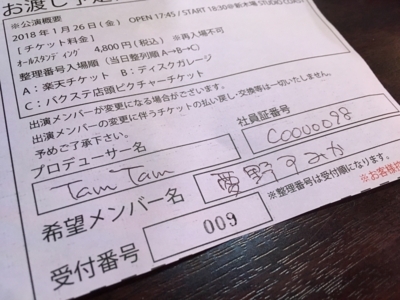 お渡し予
※公演概要
2018年1月26日(金) OPEN 17:45 / START 18:30@新木場 STUDIO COAST
[チケット料金]
オールスタンディング 4,800円(税込) ※再入場不可
整理番号入場順(当日整列順A→B→C)
A:楽天チケット B:ディスクガレージ
C:バクステ店頭ピクチャーチケット
出演メンバーが変更になる場合がございます。
出演メンバーの変更に伴うチケットの払い戻し・交換等は一切いたしません。
予めご了承下さい。
プロデューサー名
社員証番号
Tam Tam
C0000098
希望メンバー名
愛野すみか
受付番号
009
※整理番号は受付順になります。
※お客様控